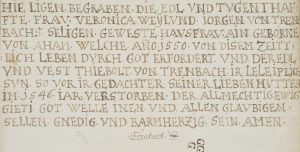 HIE LIGEN BEGRABEN DIE EDL VND TVGENTHAF
TE FRAV VERONICA WEYLVND IORGEN VON TREN
BACHS SELIGEN GEWESTE HAVSFRAV AIN GEBORNE
VON AHAM WELCHE AÑO 1550 VON DISEM ZEITT
LICH LEBEN DVRCH GOT ERFORDERT VND DER EDL
VND VEST THIEBOLT VON TRENBACH IR LEIPLIG
SVN SO VOR IR GEDACHTER SEINER LIEBEN MVTTER
IM 1546 IAR VERSTORBEN DER ALMECHTIG EWIG
GIETI GOT WELLE INEN VND ALLEN GLAVBIGEN
SELLEN GNEDIG VND BARMHERZIG SEIN AMEN
Trenbach